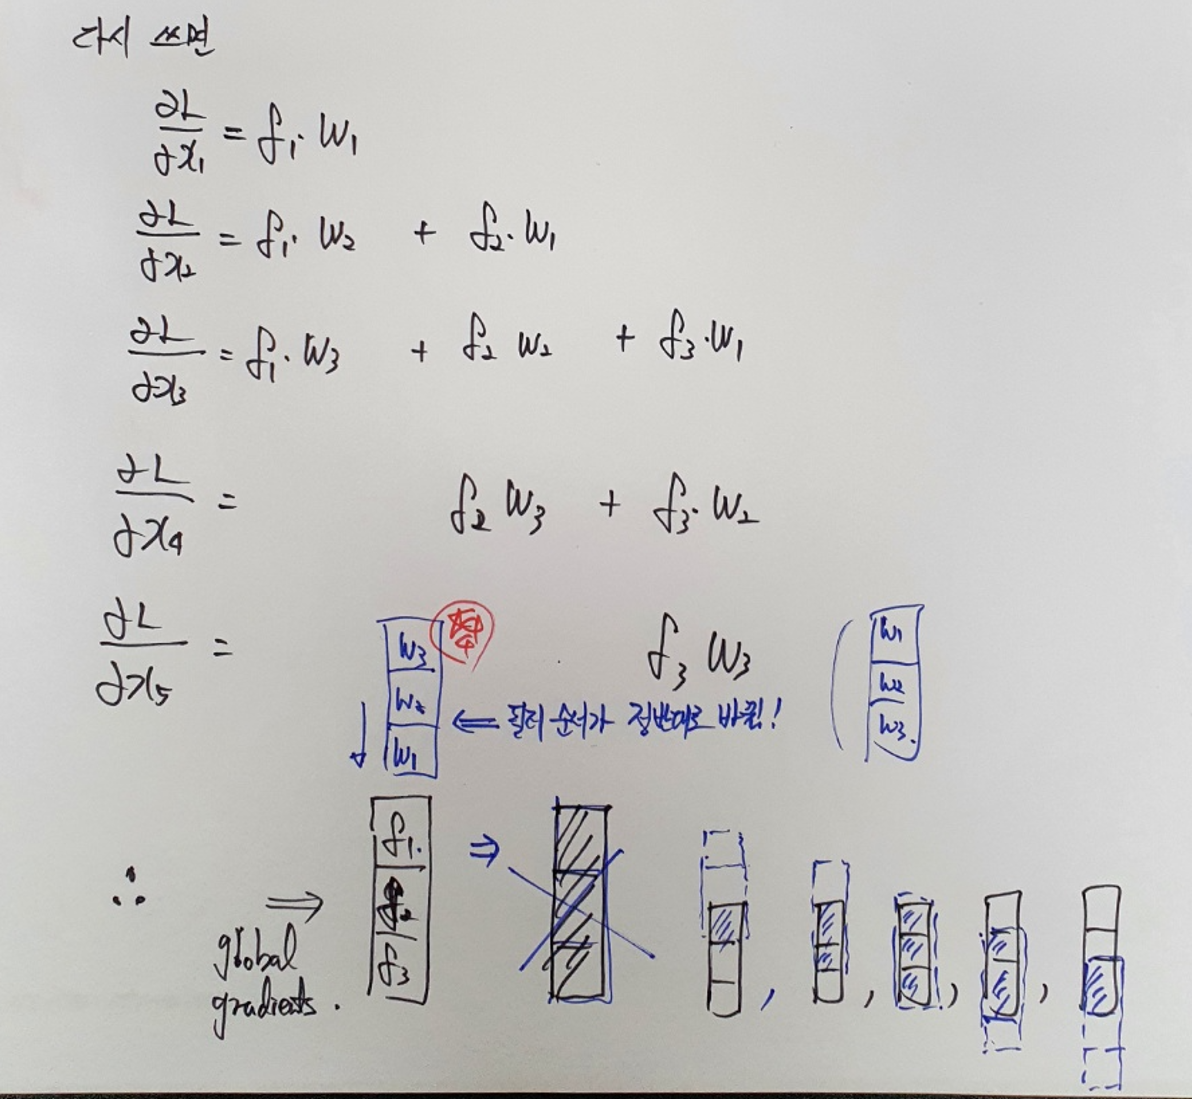 다시 쓰면
∂L/∂x₁ = f₁·W₁
∂L/∂x₂ = f₁·W₂ + f₂·W₁
∂L/∂x₃ = f₁·W₃ + f₂ W₂ + f₃·W₁
∂L/∂x₄ = f₂ W₃ + f₃·W₂
∂L/∂x₅ = f₃ W₃
W₃
W₂
W₁
⇐ 필터 순서가 정반대로 바뀜!
W₁
W₂
W₃.
∴ ⇒
global
gradients.
f₁.
f₂
f₃
⇒
, , , ,